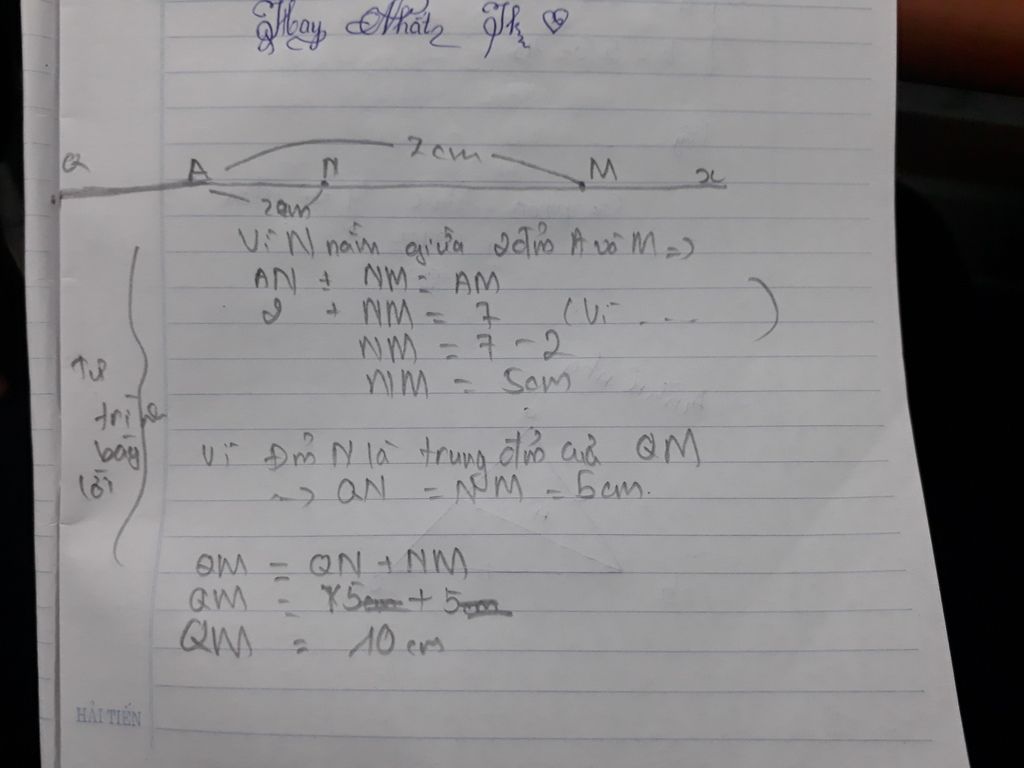 Hay Nhất
Q A N 7cm M x
2cm
Vì N nằm giữa 2 điểm A và M =>
AN + NM = AM
2 + NM = 7 (Vì ... )
NM = 7 - 2
NM = 5cm
Tự
trình
bày
lời
Vì Điểm N là trung điểm của QM
-> QN = NM = 5cm.
QM = QN + NM
QM = 5cm + 5cm
QM = 10 cm
HẢI TIẾN